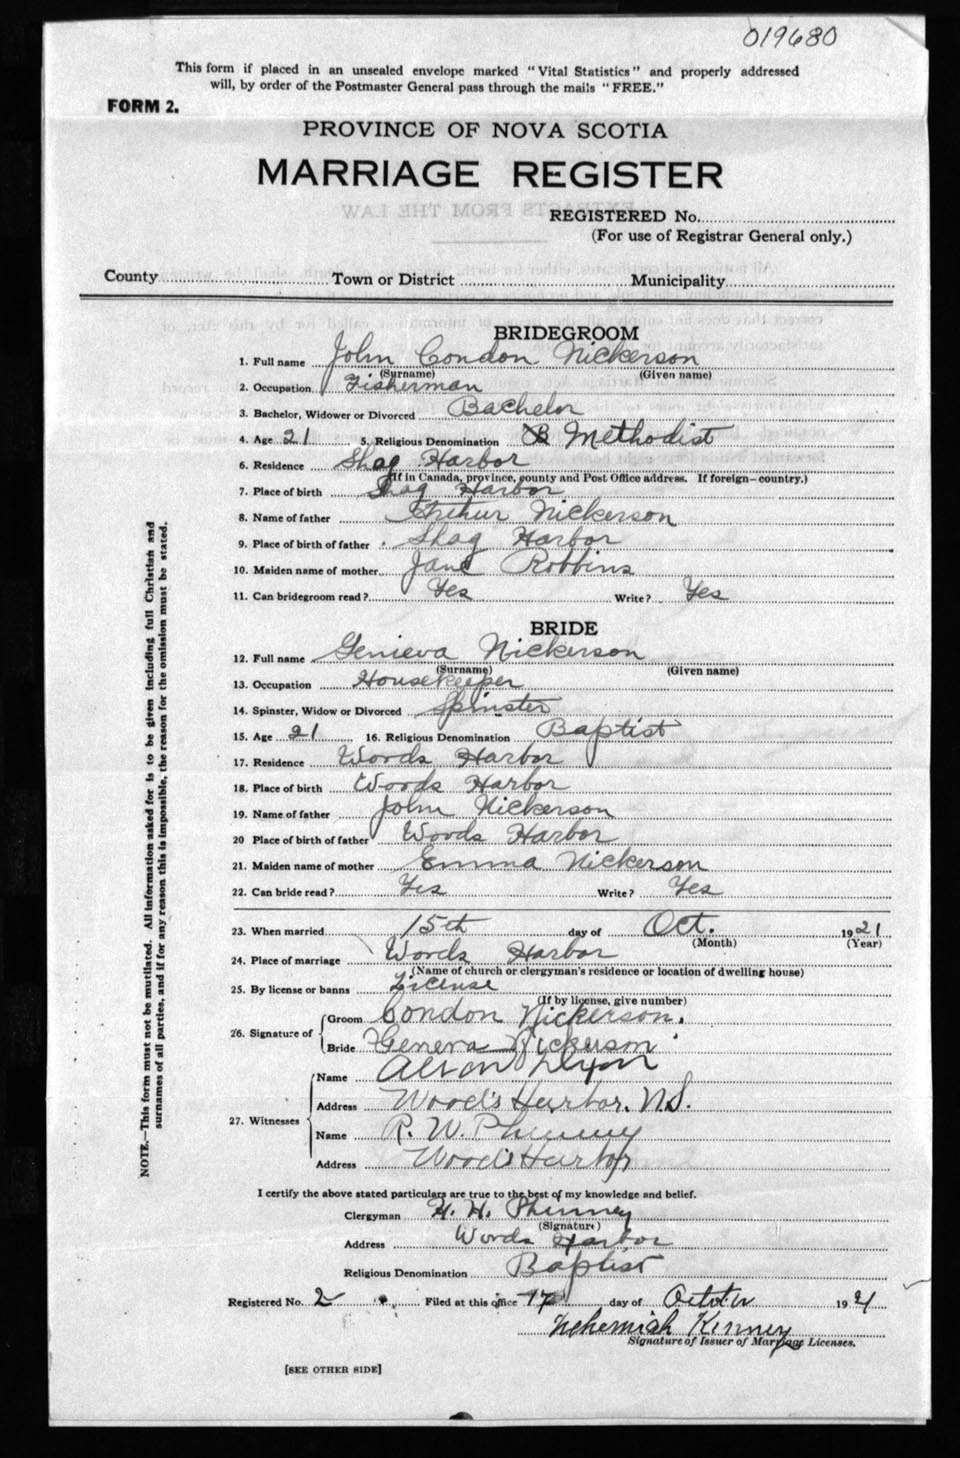 019680
This form if placed in an unsealed envelope marked "Vital Statistics" and properly addressed
will, by order of the Postmaster General pass through the mails "FREE."
FORM 2.
PROVINCE OF NOVA SCOTIA
MARRIAGE REGISTER
REGISTERED No.
(For use of Registrar General only.)
County Town or District Municipality
BRIDEGROOM
1. Full name John Condon Nickerson
(Surname) (Given name)
2. Occupation Fisherman
3. Bachelor, Widower or Divorced Bachelor
4. Age 21 5. Religious Denomination Methodist
6. Residence Shag Harbor
(If in Canada, province, county and Post Office address. If foreign—country.)
7. Place of birth Shag Harbor
8. Name of father Arthur Nickerson
9. Place of birth of father Shag Harbor
10. Maiden name of mother Jane Robbins
11. Can bridegroom read? Yes Write? Yes
BRIDE
12. Full name Genieva Nickerson
(Surname) (Given name)
13. Occupation Housekeeper
14. Spinster, Widow or Divorced Spinster
15. Age 21 16. Religious Denomination Baptist
17. Residence Woods Harbor
18. Place of birth Woods Harbor
19. Name of father John Nickerson
20 Place of birth of father Woods Harbor
21. Maiden name of mother Emma Nickerson
22. Can bride read? Yes Write? Yes
23. When married 15th day of Oct. 1921
(Month) (Year)
24. Place of marriage Woods Harbor
(Name of church or clergyman's residence or location of dwelling house)
25. By license or banns License
(If by license, give number)
26. Signature of Groom Condon Nickerson.
Bride Geneva Nickerson
27. Witnesses Name Alton
Address Wood's Harbor. N.S.
Name R. W. Phinney
Address Wood's Harbor
I certify the above stated particulars are true to the best of my knowledge and belief.
Clergyman H. H. Phinney
(Signature)
Address Woods Harbor
Religious Denomination Baptist
Registered No. 2 Filed at this office 17 day of October 192
Nehemiah Kinney
Signature of Issuer of Marriage Licenses.
[SEE OTHER SIDE]
NOTE.—This form must not be mutilated. All information asked for is to be given including full Christian and
surnames of all parties, and if for any reason this is impossible, the reason for the omission must be stated.